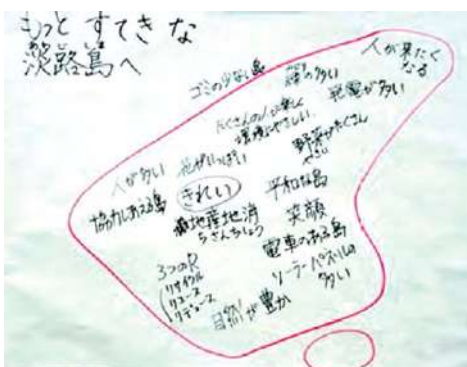 もっと すてきな
淡路島へ
人が来たく
なる
ゴミの少ない島
緑の多い
発電が多い
たくさんの人が楽しく
環境にやさしい
野菜がたくさん
やさい
人が多い
花がいっぱい
きれい
平和な島
協力しあえる島
地産地消
ちさんちしょう
笑顔
電車のある島
3つのR
リサイクル
リユース
リデュース
ソーラーパネルの
多い
自然が豊か